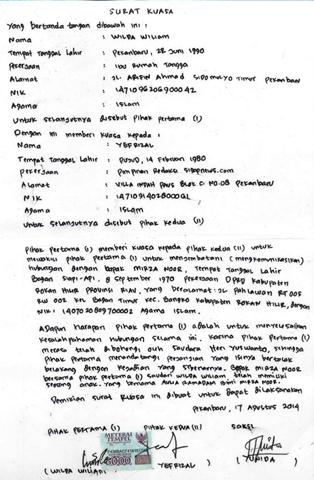 SURAT KUASA
Yang bertanda tangan dibawah ini :
Nama : WILDA WILIAM
Tempat Tanggal Lahir : Pekanbaru, 22 Juni 1990
Pekerjaan : Ibu Rumah Tangga
Alamat : JL. ARIFIN Ahmad SIDOMULYO TIMUR PEKANBARU
NIK : 1471096206900042
Agama : ISLAM
Untuk selanjutnya disebut Pihak Pertama (I)
Dengan ini memberi kuasa kepada :
Nama : YEFRIZAL
Tempat Tanggal Lahir : PUJUD, 14 Februari 1980
Pekerjaan : Pimpinan Redaksi
Alamat : VILLA INDAH PAUS BLOK C NO.08 PEKANBARU
NIK :
Agama : ISLAM
Untuk selanjutnya disebut Pihak kedua (II)
Pihak Pertama (I) memberi kuasa kepada pihak kedua (II) untuk
mewakili pihak pertama (I) untuk menjembatani (mengkomunikasikan)
hubungan dengan bapak MIRZA NOOR, Tempat Tanggal Lahir
Bagan Siapi-Api, 8 September 1970 Pekerjaan DPRD Kabupaten
ROKAN HILIR PROVINSI RIAU, Yang beralamat: JL PAHLAWAN RT 005
RW 002 Kel Bagan Timur Kec. Bangko Kabupaten ROKAN HILIR, dengan
NIK : 1407020809770002 Agama Islam.
Adapun harapan Pihak Pertama (I) adalah untuk menyelesaikan
Kesalahpahaman hubungan selama ini. karena Pihak Pertama (I)
merasa telah dibohongi oleh Saudara Heri Yuswanto, Sehingga
Pihak Pertama menandatangi Perjanjian Yang isinya bertolak
belakang dengan kejadian yang sebenarnya. Bapak MIRZA NOOR
bersama pihak pertama (I) saudari WILDA WILIAM telah memiliki
seorang anak. Yang bernama AULIA RAMADAN MIRZA NOOR.
Demikian surat kuasa ini dibuat untuk dapat dilaksanakan
Pekanbaru, 17 AGUSTUS 2014
PIHAK PERTAMA (I) PIHAK KEDUA (II) SAKSI
METERAI TEMPEL
6000
(WILDA WILIAM) (YEFRIZAL) (YURIDA)